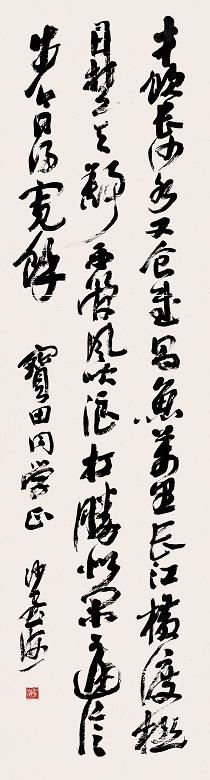 才飲長沙水又食武昌魚萬里长江橫渡極
目楚天舒不管風吹浪打勝似閑庭信
步今日得寬餘 寶田同学正 沙孟海